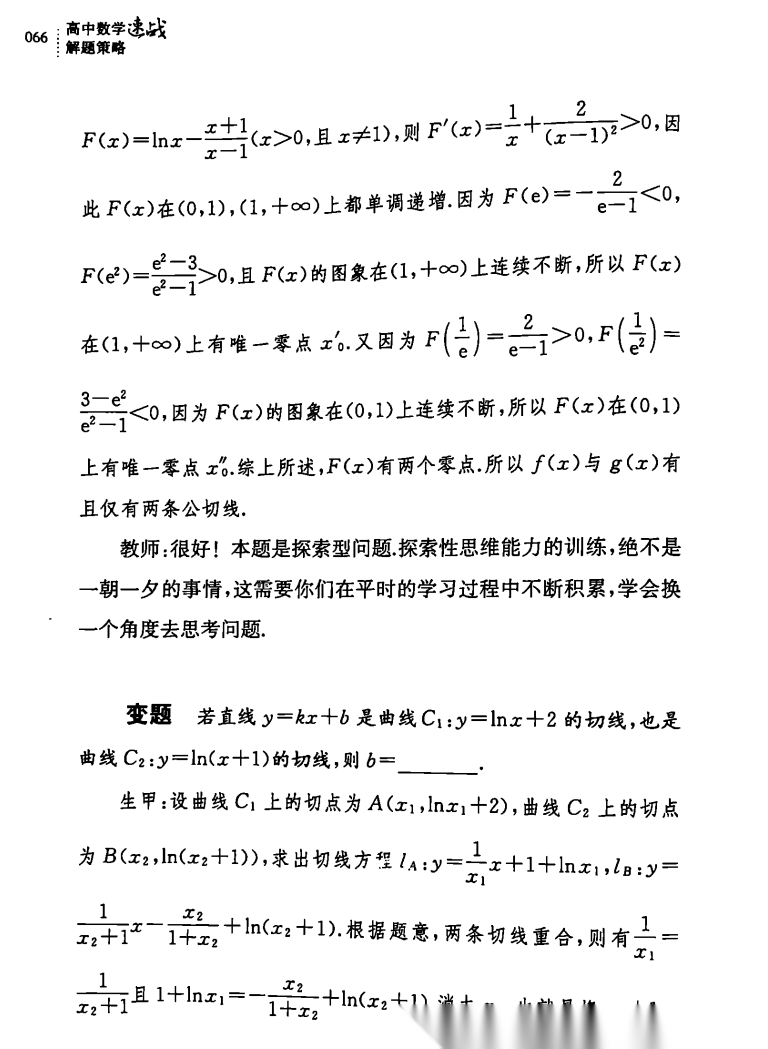 066
高中数学速战
解题策略
F(x)=lnx−\frac{x+1}{x−1}(x>0,且 x≠1),则 F′(x)=\frac{1}{x}+\frac{2}{(x−1)²}>0,因
此 F(x)在(0,1),(1,+∞)上都单调递增.因为 F(e)=−\frac{2}{e−1}<0,
F(e²)=\frac{e²−3}{e²−1}>0,且 F(x)的图象在(1,+∞)上连续不断,所以 F(x)
在(1,+∞)上有唯一零点 x′₀.又因为 F(\frac{1}{e})=\frac{2}{e−1}>0,F(\frac{1}{e²})=
\frac{3−e²}{e²−1}<0,因为 F(x)的图象在(0,1)上连续不断,所以 F(x)在(0,1)
上有唯一零点 x″₀.综上所述,F(x)有两个零点.所以 f(x)与 g(x)有
且仅有两条公切线.
教师:很好！本题是探索型问题.探索性思维能力的训练,绝不是
一朝一夕的事情,这需要你们在平时的学习过程中不断积累,学会换
一个角度去思考问题.
变题 若直线 y=kx+b 是曲线 C₁:y=lnx+2 的切线,也是
曲线 C₂:y=ln(x+1)的切线,则 b=______.
生甲:设曲线 C₁ 上的切点为 A(x₁,lnx₁+2),曲线 C₂ 上的切点
为 B(x₂,ln(x₂+1)),求出切线方程 l_A:y=\frac{1}{x₁}x+1+lnx₁,l_B:y=
\frac{1}{x₂+1}x−\frac{x₂}{1+x₂}+ln(x₂+1).根据题意,两条切线重合,则有\frac{1}{x₁}=
\frac{1}{x₂+1}且 1+lnx₁=−\frac{x₂}{1+x₂}+ln(x₂+1)